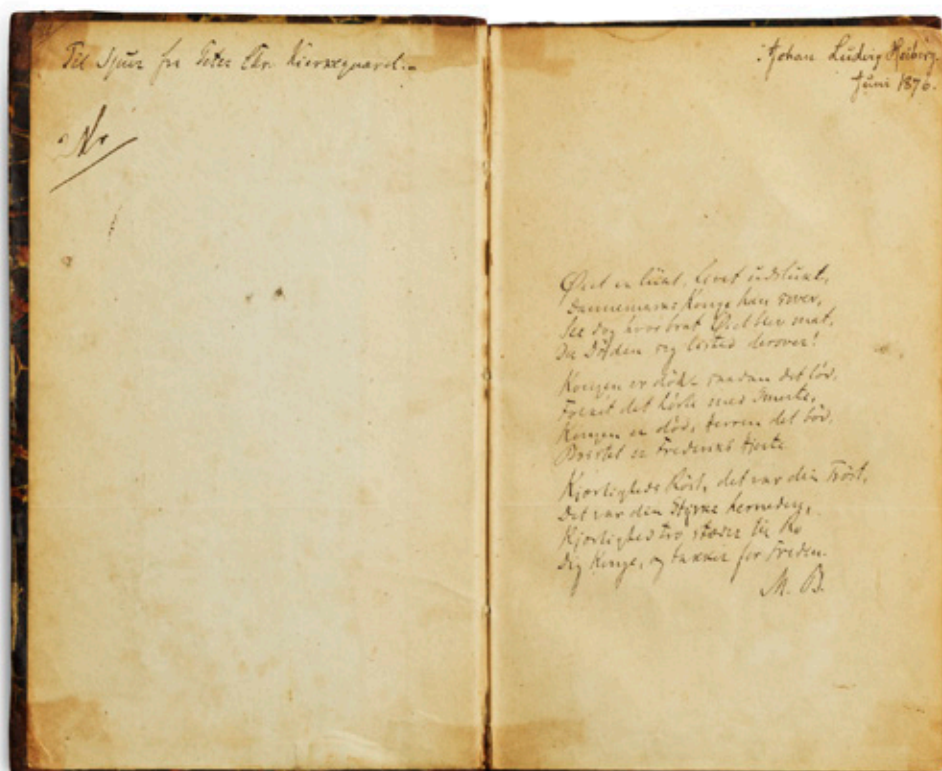 Til Sjun fra Peter Chr. Kierkegaard.
Nr
Johan Ludvig Heiberg.
Juni 1876.
Øiet er lukt, Livet udslukt,
Dannemarks Konge han sover,
See dog hvor brat Øiet blev mat,
Da Døden sig listed derover!
Kongen er død, saadan det lød,
Folket det hørte med Smerte,
Kongen er død, Herren det bød,
Bristet er Frederiks Hjerte
Kjærligheds Røst, det var din Trøst,
Det var din Styrke herneden,
Kjærlighed tro steder til Ro
Dig Konge, og takker for Freden.
M. B.